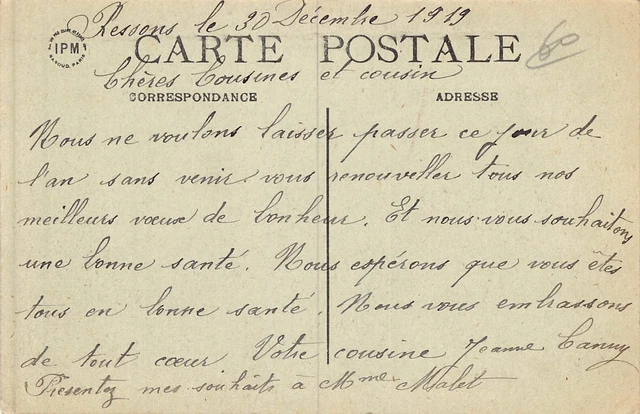 Ressons le 30 Décembre 1919
IPM
CARTE POSTALE
60
Chères Cousines et cousin
CORRESPONDANCE
ADRESSE
Nous ne voulons laisser passer ce jour de
l'an sans venir vous renouveller tous nos
meilleurs vœux de bonheur. Et nous vous souhaitons
une bonne santé. Nous espérons que vous êtes
tous en bonne santé. Nous vous embrassons
de tout cœur Votre cousine Jeanne
Présentez mes souhaits à Mme Malet